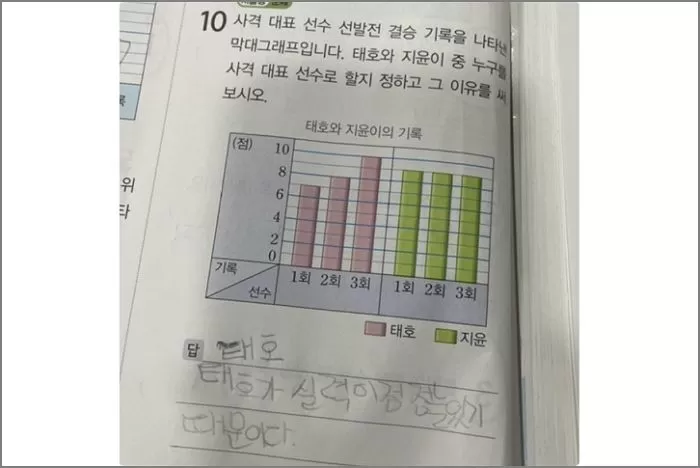 10 사격 대표 선수 선발전 결승 기록을 나타낸
막대그래프입니다. 태호와 지윤이 중 누구를
사격 대표 선수로 할지 정하고 그 이유를 써
보시오.
태호와 지윤이의 기록
(점)
10
8
6
4
2
0
기록
선수
1회 2회 3회 1회 2회 3회
태호 지윤
답 태호
태호가 실력이점 점 있기
때문이다.
위
타
록